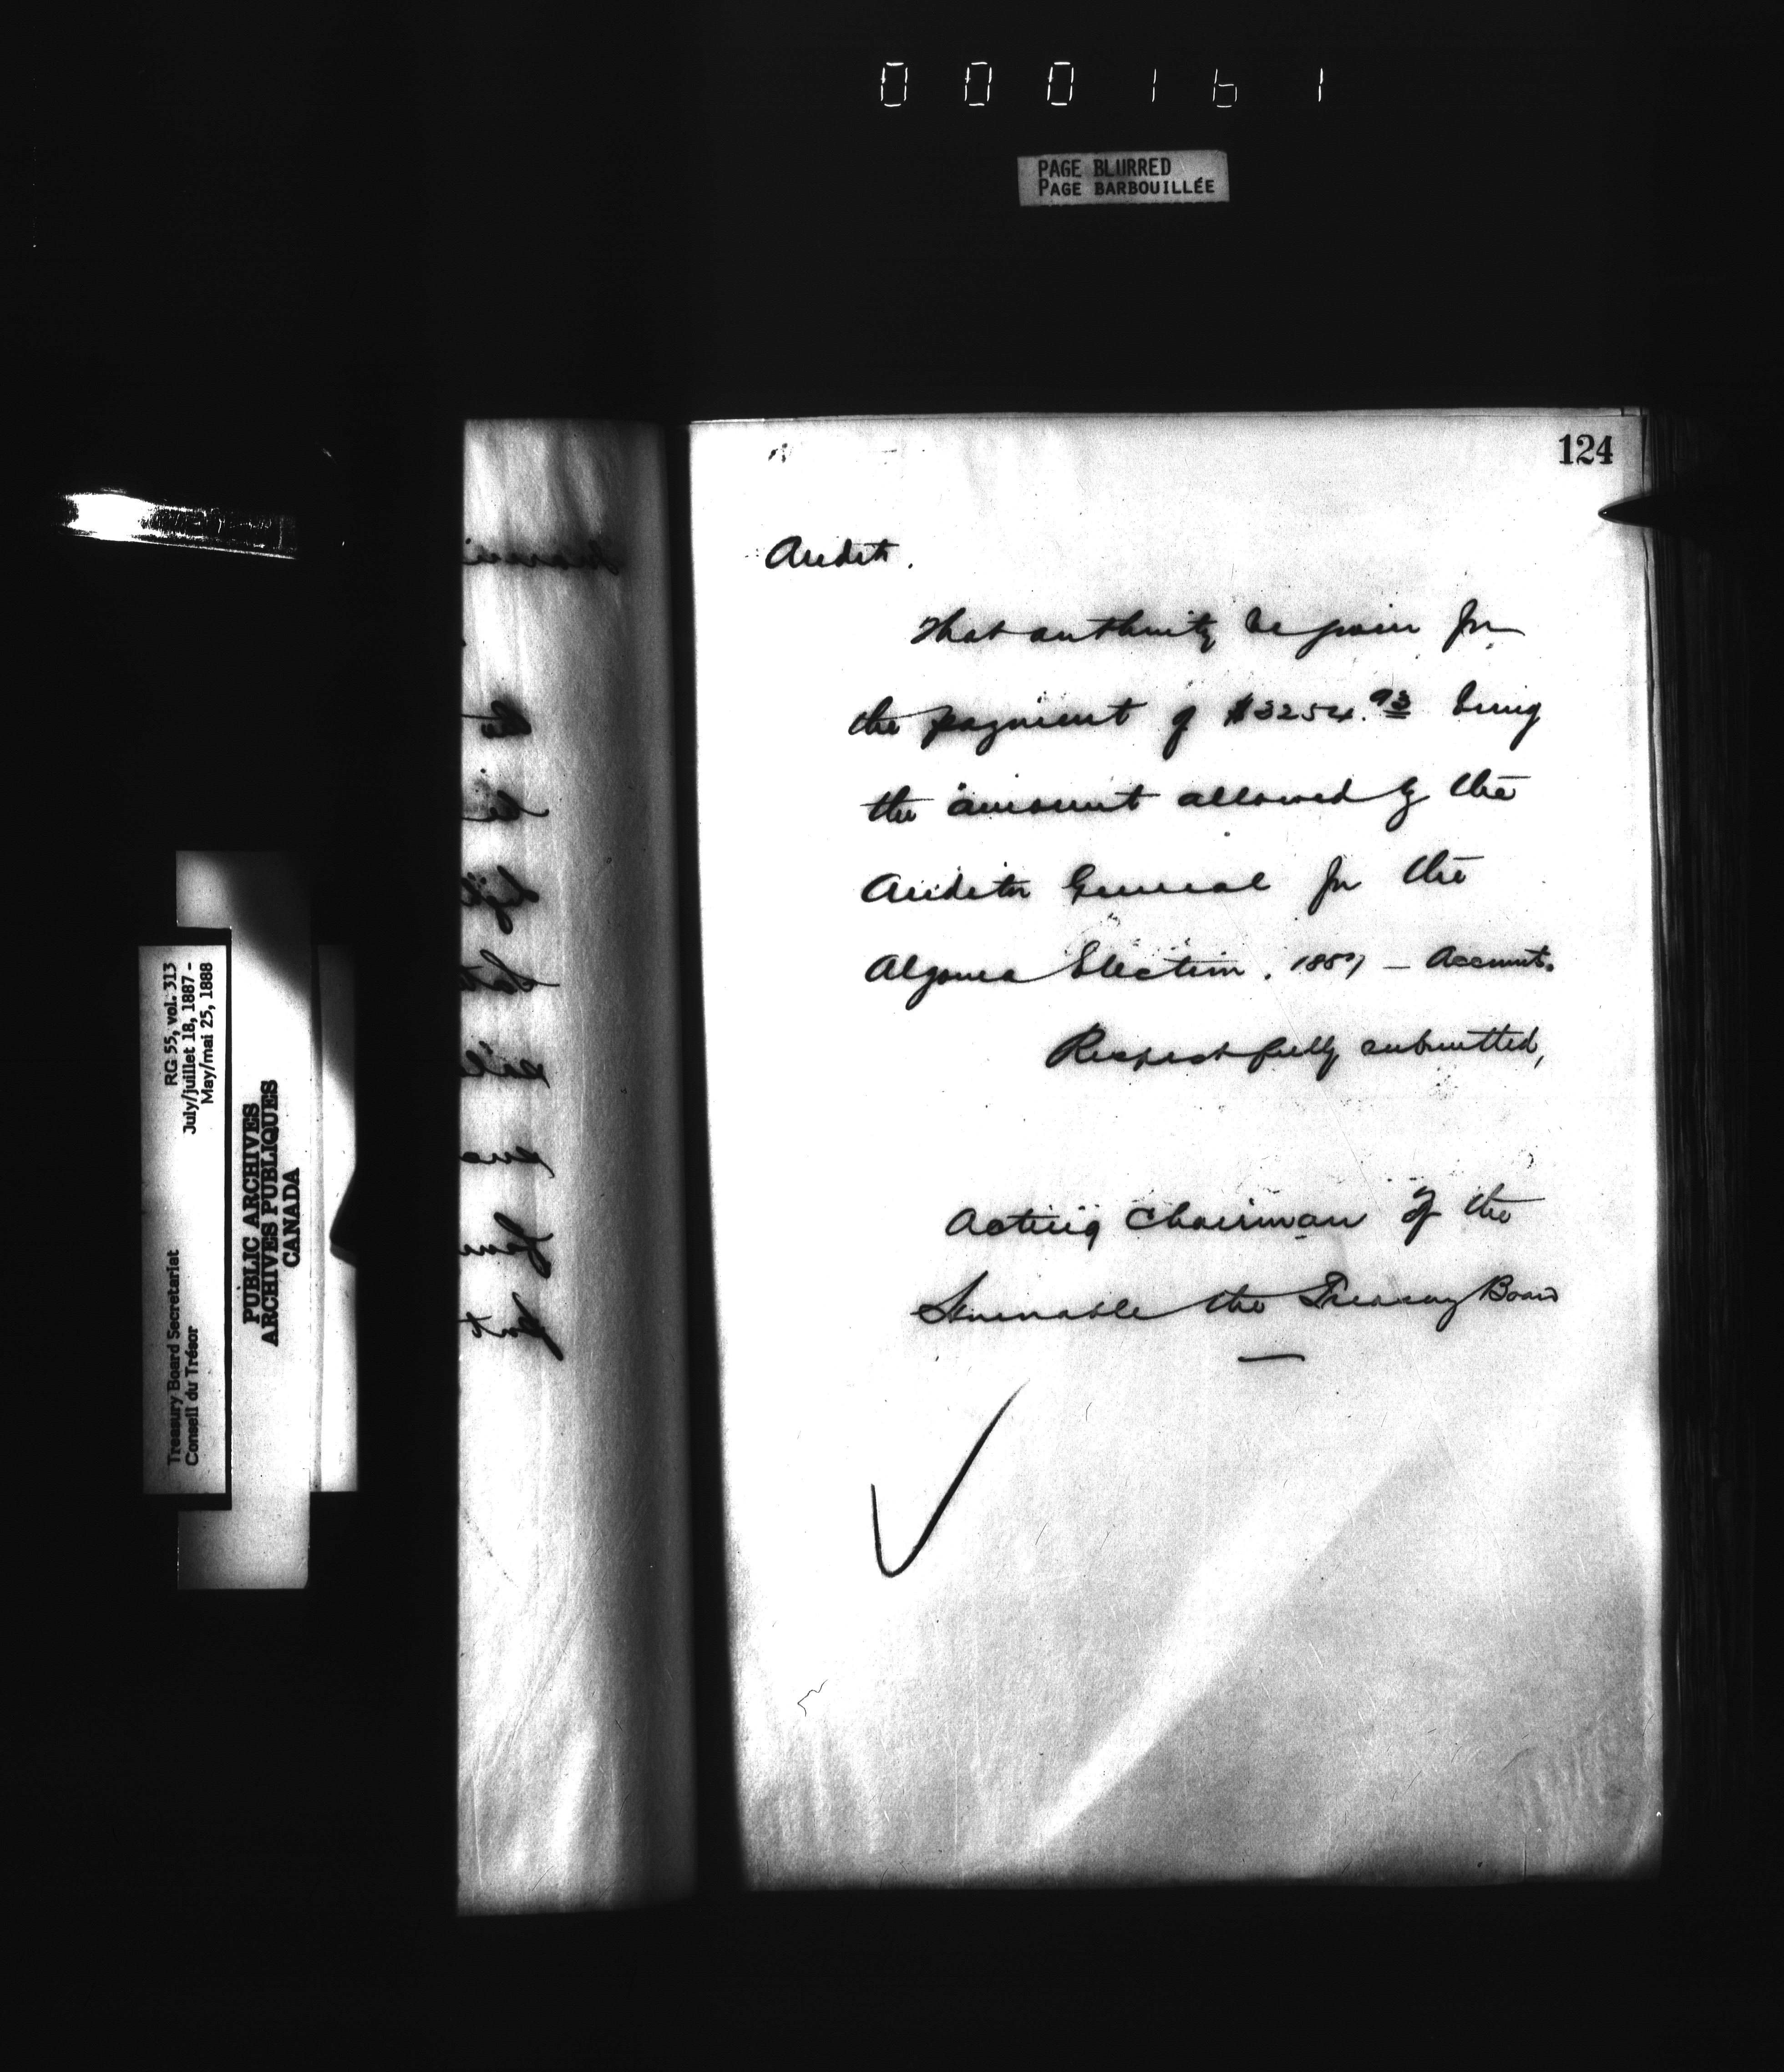 000161
PAGE BLURRED
PAGE BARBOUILLÉE
124
Audit.
That authority be given for
the payment of $3254.93 being
the amount allowed by the
Auditor General for the
Algoma Election. 1887 - Accounts.
Respectfully submitted,
Acting Chairman of the
Honorable the Treasury Board
RG 55, vol. 313
July/juillet 18, 1887 -
May/mai 25, 1888
Treasury Board Secretariat
Conseil du Trésor
PUBLIC ARCHIVES
ARCHIVES PUBLIQUES
CANADA